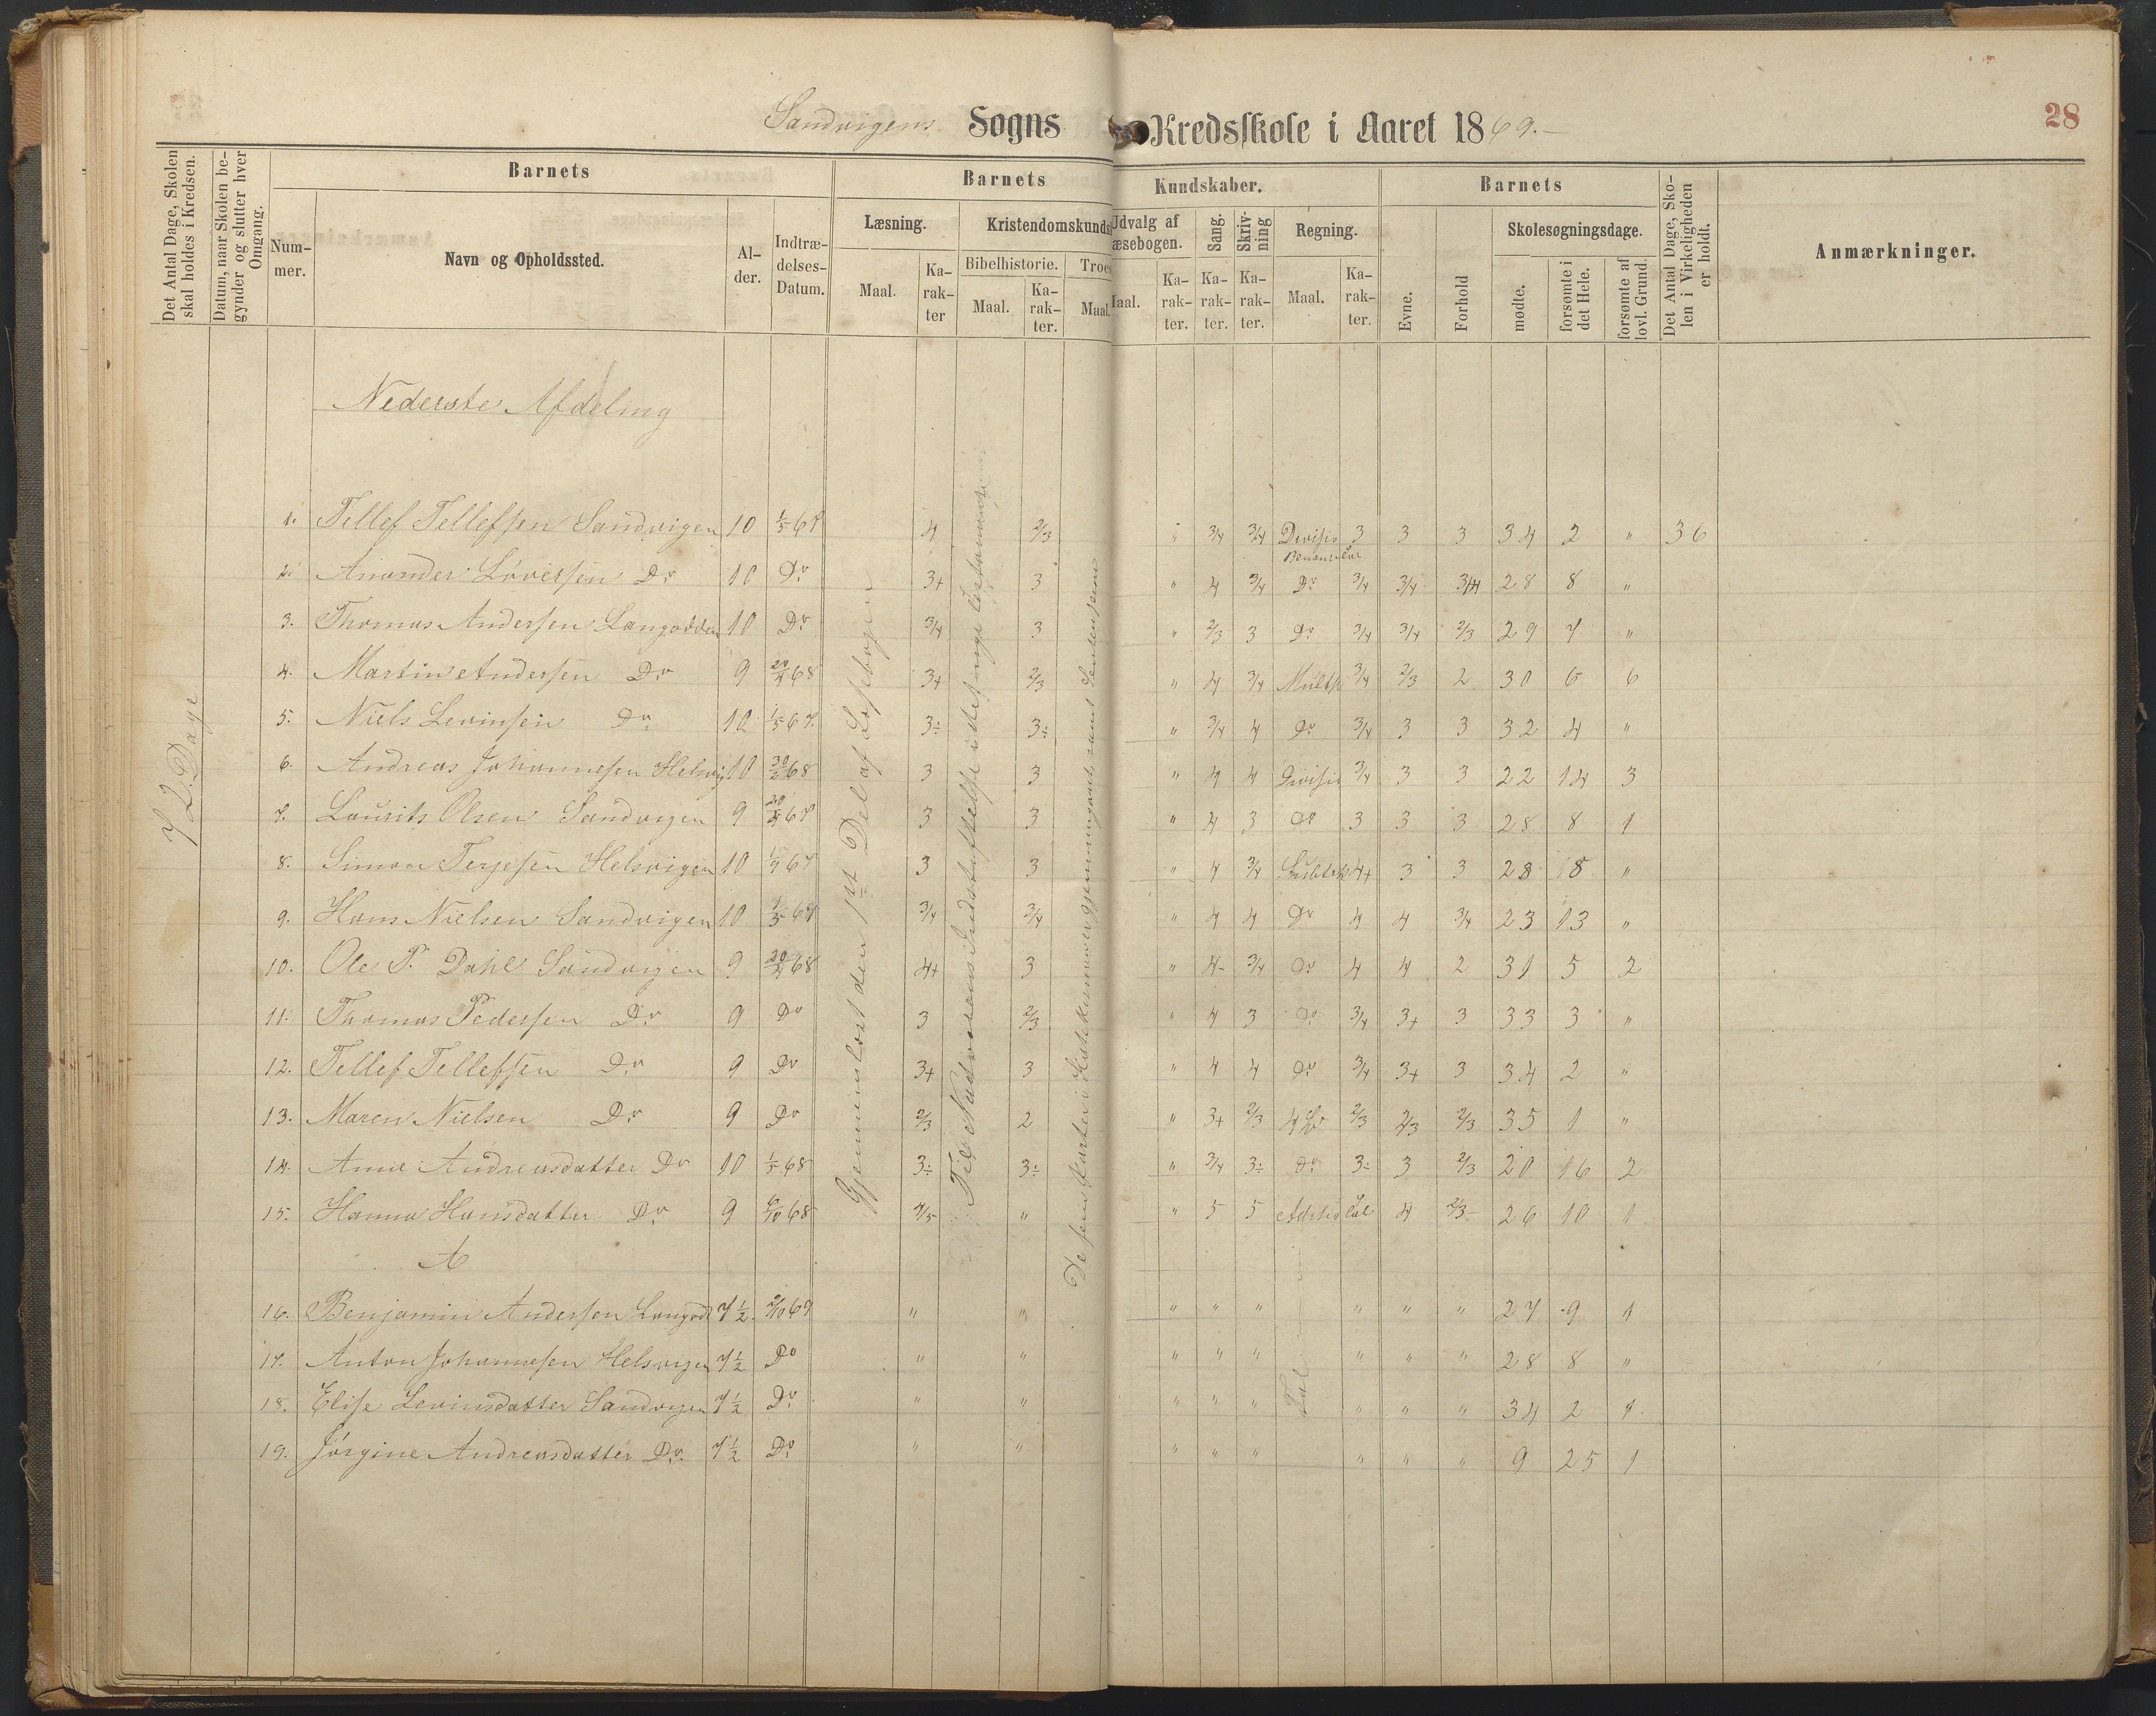 28
Sandvigens Sogns Kredsskole i Aaret 1869.-
Det Antal Dage, Skolen skal holdes i Kredsen.
Datum, naar Skolen begynder og slutter hver Omgang.
Barnets
Nummer.
Navn og Opholdssted.
Alder.
Indtrædelses-Datum.
Barnets
Kundskaber.
Læsning.
Maal.
Karakter
Kristendomskunds
Bibelhistorie.
Maal.
Karakter.
Troes
Maal.
Udvalg af
æsebogen.
Maal.
Karakter.
Sang.
Karakter.
Skrivning
Karakter.
Regning.
Maal.
Karakter.
Barnets
Evne.
Forhold
Skolesøgningsdage.
mødte.
forsømte i det Hele.
forsømte af lovl. Grund.
Det Antal Dage, Skolen i Virkeligheden er holdt.
Anmærkninger.
72 Dage
Nederste Afdeling
Gjennemlæst den 1st Del af Læsebogen
1. Tellef Tellefsen Sandvigen 10 1/5 67 4 2/3 " 3/4 3/4 Divisio 3 3 3 34 2 " 36
2. Do 10 Do 3+ 3 " 4 3/4 Do 3/4 3/4 28 8 "
3. Thomas Andersen Langodden 10 Do 3/4 3 " 2/3 3 Do 3/4 3/4 2/3 29 7 "
4. Martin Andersen Do 9 68 3+ 2/3 " 4 3/4 Multip 3/4 2/3 2 30 6 6
5. Niels Levinsen Do 10 1/5 67 3÷ 3÷ " 3/4 4 Do 3/4 3 3 32 4 "
6. Andreas Johannesen Helsvig 10 68 3 3 " 4 4 Divisio 3/4 3 3 22 14 3
7. Laurits Olsen Sandvigen 9 67 3 3 " 4 3 Do 3 3 3 28 8 1
8. Simon Terjesen Helsvigen 10 67 3 3 " 4 3/4 4+ 3 3 28 8 "
9. Hans Nielsen Sandvigen 10 67 3/4 3/4 " 4 4 Do 4 4 3/4 23 13 "
10. Ole P. Dahl Sandvigen 9 68 4+ 3 " 4- 3/4 Do 4 4 2 31 5 2
11. Thomas Pedersen Do 9 Do 3 2/3 " 4 3 Do 3/4 3+ 3 33 3 "
12. Tellef Tellefsen Do 9 Do 3+ 3 " 4 4 Do 3/4 3+ 3 34 2 "
13. Maren Nielsen Do 9 Do 2/3 2 " 3+ 2/3 2/3 2/3 2/3 35 1 "
14. Anne Andreasdatter Do 10 1/5 68 3÷ 3÷ " 3/4 3÷ Do 3÷ 3 2/3 20 16 2
15. Hanna Hansdatter Do 9 6/10 68 4/5 " " 5 5 4 2/3 26 10 1
A
16. Benjamin Andersen Langod 7 1/2 69 " " " " " " " " 27 9 1
17. Anton Johannesen Helsvigen 7 1/2 Do " " " " " " " " 28 8 "
18. Elise Levinsdatter Sandvigen 7 1/2 Do " " " " " Tal " " " 34 2 1
19. Jørgine Andreasdatter Do 7 1/2 Do " " " " " " " " 9 25 1